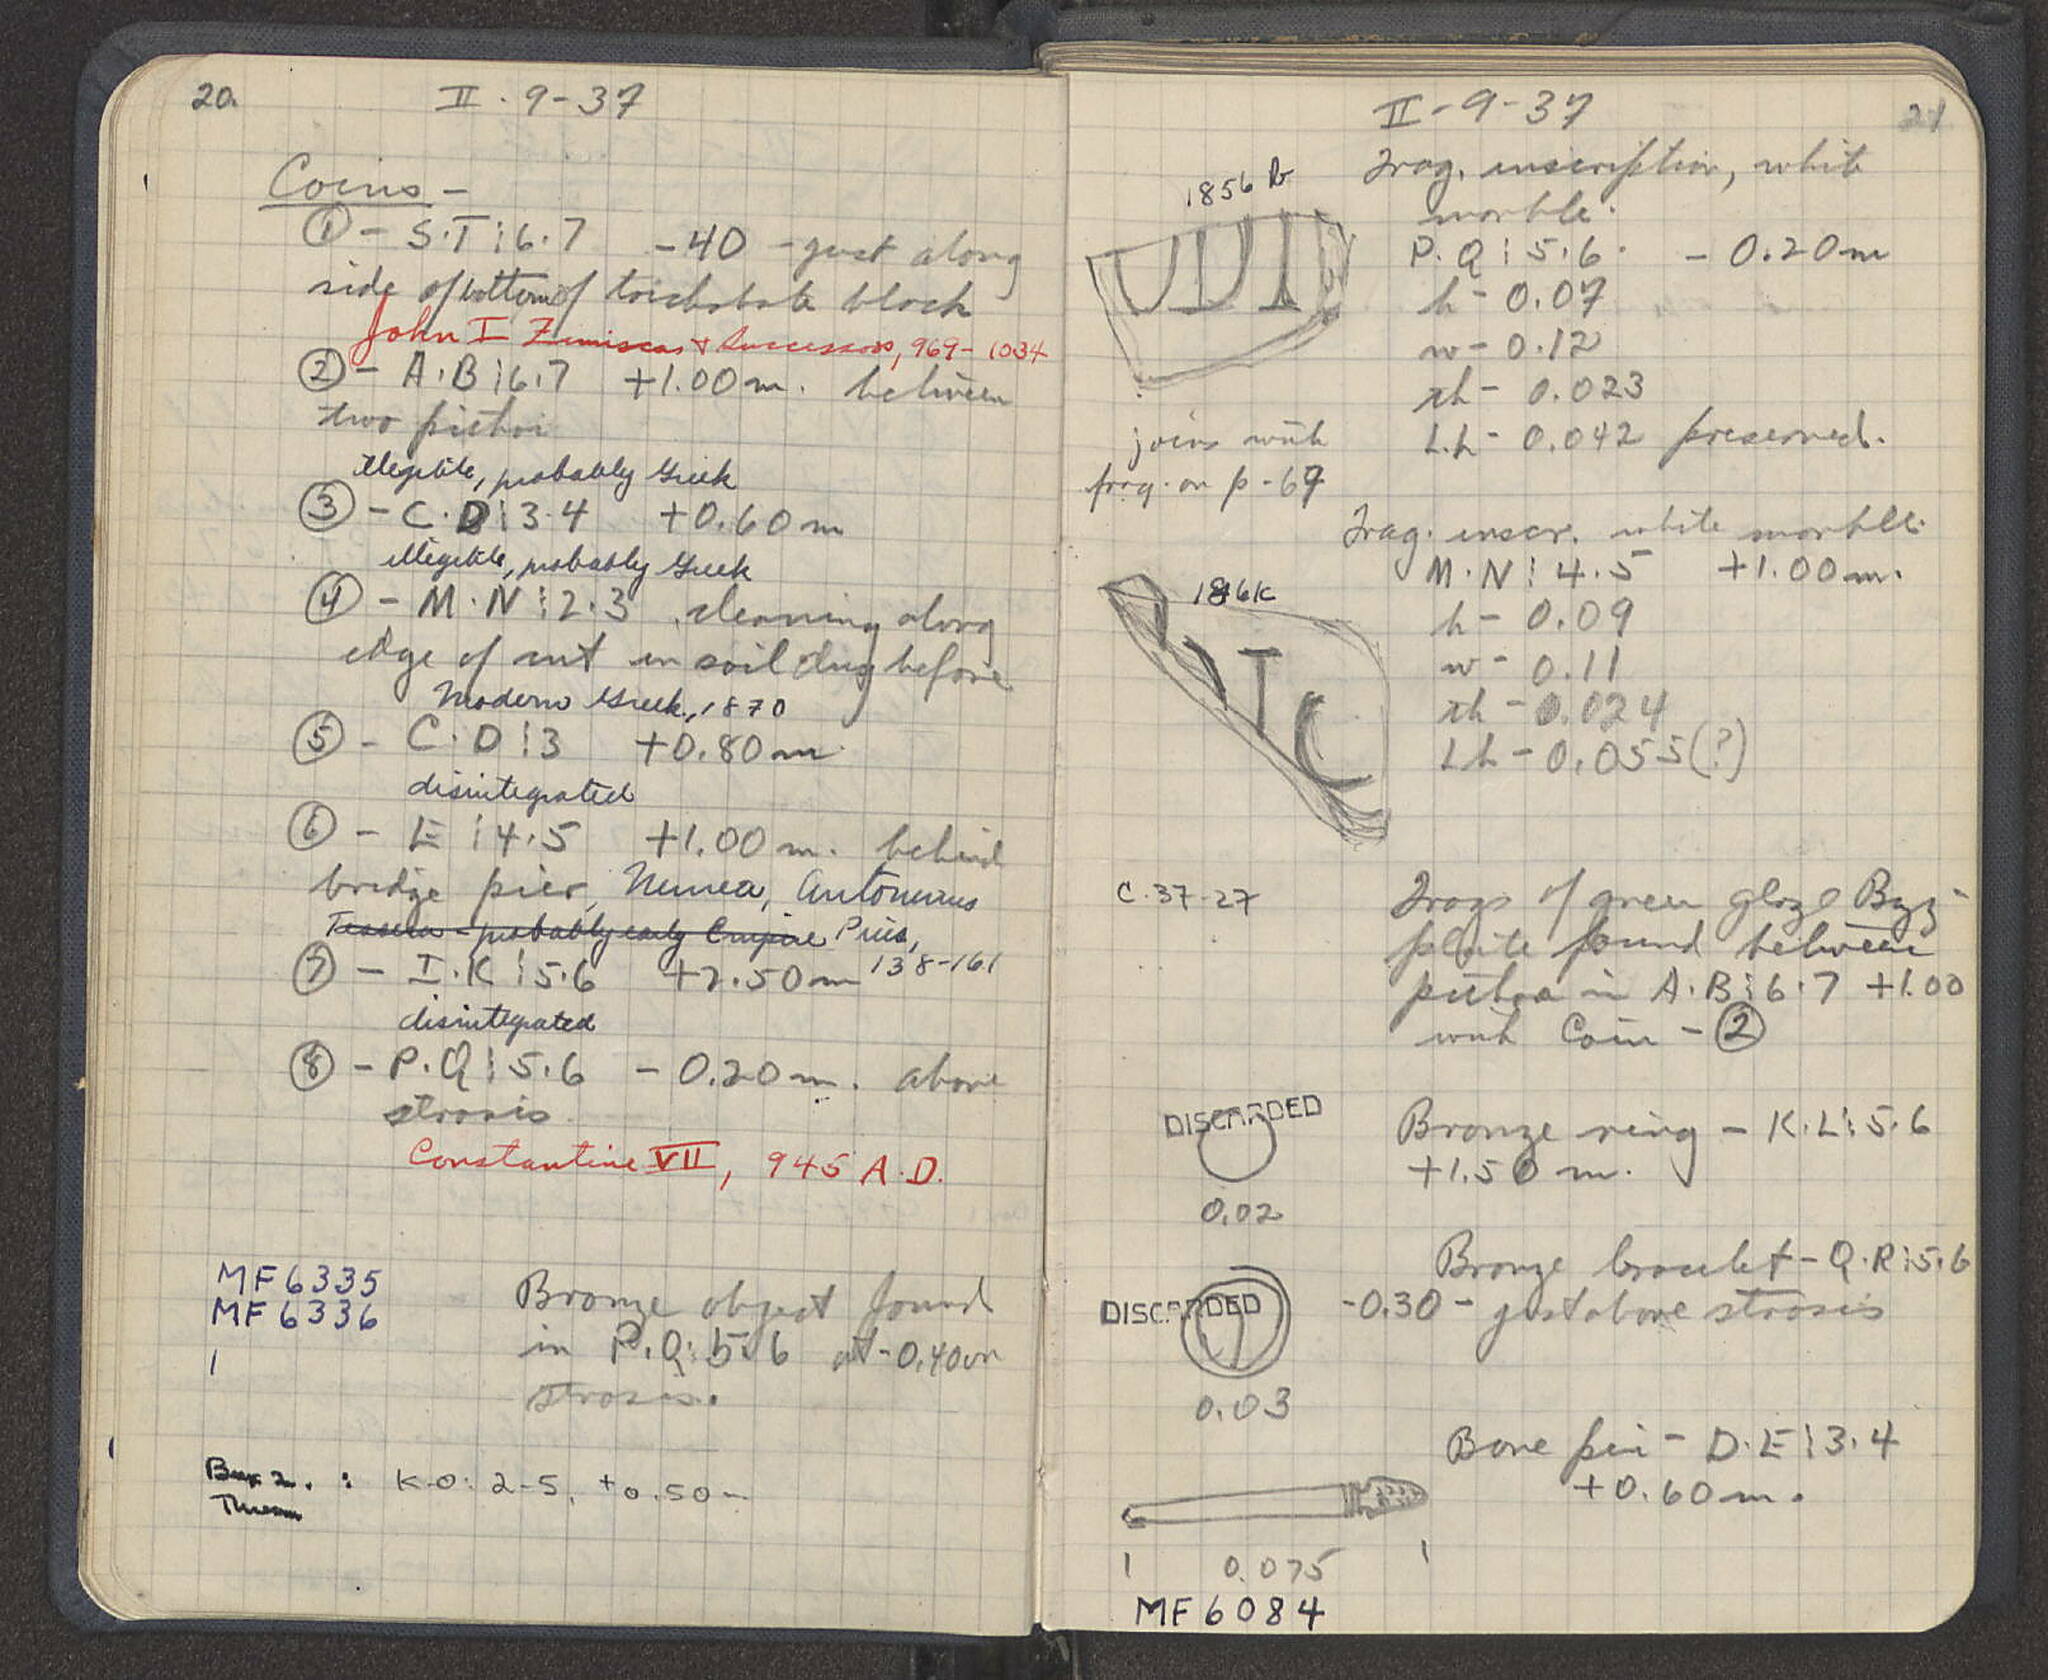 20.
II · 9 - 37
Coins -
① - S·T ¦ 6·7 - 40 - just along
side of bottom of toichobate block
John I Zimisces + Successors, 969 - 1034
② - A·B ¦ 6·7 +1.00 m. between
two pithoi
illegible, probably Greek
③ - C·D ¦ 3·4 +0.60 m
illegible, probably Greek
④ - M·N ¦ 2·3 cleaning along
edge of cut in soil dug before
Modern Greek, 1870
⑤ - C·D ¦ 3 +0.80 m
disintegrated
⑥ - E ¦ 4·5 +1.00 m. behind
bridge pier, Numea, Antoninus
Tessera - probably early Empire Pius,
138-161
⑦ - I·K ¦ 5·6 +2.50 m
disintegrated
⑧ - P·Q ¦ 5·6 - 0.20 m. above
strosis
Constantine VII, 945 A.D.
MF 6335
MF 6336
1
Bronze object found
in P.Q ¦ 5·6 at -0.40 on
strosis.
K-O: 2-5, +0.50-
II - 9 - 37
21
1856 b
UDI
joins with
frag. on p - 69
Frag. inscription, white
marble.
P.Q ¦ 5·6. - 0.20 m
h - 0.07
w - 0.12
th - 0.023
L.h - 0.042 preserved.
Frag. inscr. white marble.
M·N ¦ 4·5 +1.00 m.
h - 0.09
w - 0.11
th - 0.024
Lh - 0.055 (?)
1846K
I C
C·37-27
Frags of green glaze Byz-
plate found between
pithoi in A·B ¦ 6·7 +1.00
with Coin - ②
DISCARDED
0.02
Bronze ring - K·L ¦ 5·6
+1.50 m.
DISCARDED
0.03
Bronze bracelet - Q·R ¦ 5·6
-0.30 - just above strosis
Bone pin - D·E ¦ 3·4
+0.60 m.
0.075
MF 6084